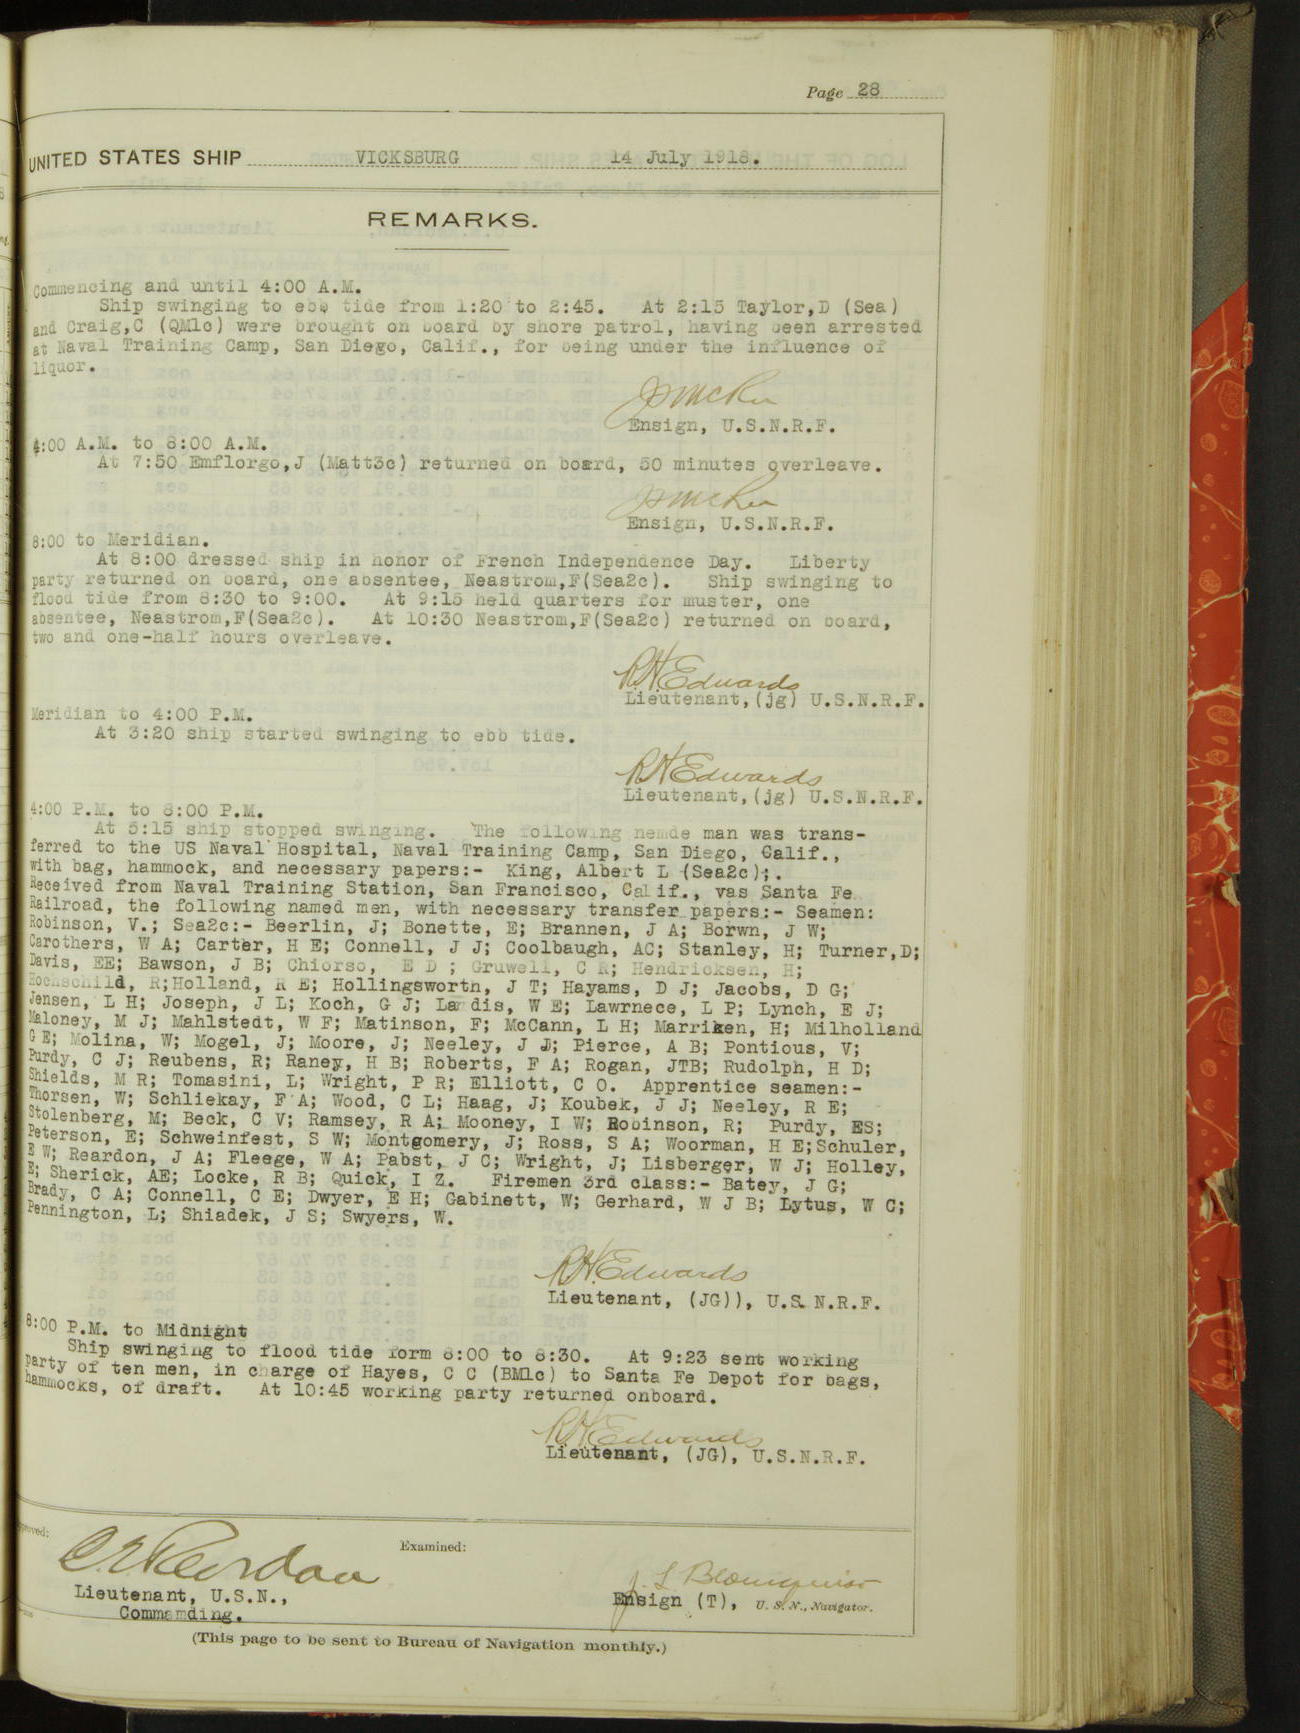 Page 28
UNITED STATES SHIP VICKSBURG 14 July 1918.
REMARKS.
Commencing and until 4:00 A.M.
Ship swinging to ebb tide from 1:20 to 2:45. At 2:15 Taylor,D (Sea)
and Craig,C (QM1c) were brought on board by shore patrol, having been arrested
at Naval Training Camp, San Diego, Calif., for being under the influence of
liquor.
Ensign, U.S.N.R.F.
4:00 A.M. to 8:00 A.M.
At 7:50 Emflorgo,J (Matt3c) returned on board, 50 minutes overleave.
Ensign, U.S.N.R.F.
8:00 to Meridian.
At 8:00 dressed ship in honor of French Independence Day. Liberty
party returned on board, one absentee, Neastrom,F(Sea2c). Ship swinging to
flood tide from 8:30 to 9:00. At 9:15 held quarters for muster, one
absentee, Neastrom,F(Sea2c). At 10:30 Neastrom,F(Sea2c) returned on board,
two and one-half hours overleave.
RH Edwards
Lieutenant,(jg) U.S.N.R.F.
Meridian to 4:00 P.M.
At 3:20 ship started swinging to ebb tide.
RH Edwards
Lieutenant,(jg) U.S.N.R.F.
4:00 P.M. to 8:00 P.M.
At 5:15 ship stopped swinging. The following nemde man was trans-
ferred to the US Naval Hospital, Naval Training Camp, San Diego, Calif.,
with bag, hammock, and necessary papers:- King, Albert L (Sea2c);.
Received from Naval Training Station, San Francisco, Calif., vas Santa Fe
Railroad, the following named men, with necessary transfer papers:- Seamen:
Robinson, V.; Sea2c:- Beerlin, J; Bonette, E; Brannen, J A; Borwn, J W;
Carothers, W A; Carter, H E; Connell, J J; Coolbaugh, AC; Stanley, H; Turner,D;
Davis, EE; Bawson, J B; Chiorso, E D ; Gruwell, C R; Hendricksen, H;
Hochschild, R;Holland, R E; Hollingsworth, J T; Hayams, D J; Jacobs, D G;
Jensen, L H; Joseph, J L; Koch, G J; Landis, W E; Lawrnece, L P; Lynch, E J;
Maloney, M J; Mahlstedt, W F; Matinson, F; McCann, L H; Marriken, H; Milholland
G E; Molina, W; Mogel, J; Moore, J; Neeley, J J; Pierce, A B; Pontious, V;
Purdy, C J; Reubens, R; Raney, H B; Roberts, F A; Rogan, JTB; Rudolph, H D;
Shields, M R; Tomasini, L; Wright, P R; Elliott, C O. Apprentice seamen:-
Thorsen, W; Schliekay, F A; Wood, C L; Haag, J; Koubek, J J; Neeley, R E;
Stolenberg, M; Beck, C V; Ramsey, R A; Mooney, I W; Robinson, R; Purdy, ES;
Peterson, E; Schweinfest, S W; Montgomery, J; Ross, S A; Woorman, H E;Schuler,
E W; Reardon, J A; Fleege, W A; Pabst, J C; Wright, J; Lisberger, W J; Holley,
E; Sherick, AE; Locke, R B; Quick, I Z. Firemen 3rd class:- Batey, J G;
Brady, C A; Connell, C E; Dwyer, E H; Gabinett, W; Gerhard, W J B; Lytus, W C;
Pennington, L; Shiadek, J S; Swyers, W.
RH Edwards
Lieutenant, (JG)), U.S.N.R.F.
8:00 P.M. to Midnight
Ship swinging to flood tide form 8:00 to 8:30. At 9:23 sent working
party of ten men, in charge of Hayes, C C (BM1c) to Santa Fe Depot for bags,
hammocks, of draft. At 10:45 working party returned onboard.
RH Edwards
Lieutenant, (JG), U.S.N.R.F.
Examined:
Lieutenant, U.S.N.,
Commamding.
Ensign (T), U. S. N., Navigator.
(This page to be sent to Bureau of Navigation monthly.)